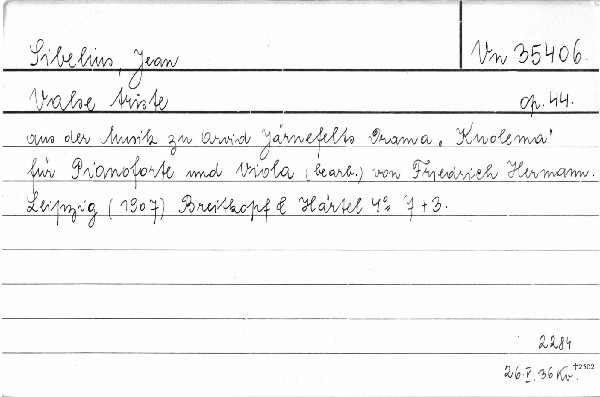 Sibelius, Jean
Vn 35406.
Valse triste
op. 44.
aus der Musik zu Arvid Järnefelts Drama „Kuolema"
für Pianoforte und Viola (bearb.) von Friedrich Hermann.
Leipzig (1907) Breitkopf & Härtel 4º 7 + 3.
2284
26.V.36 Kv. †2502